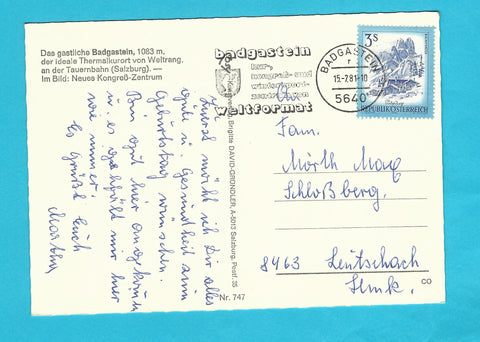 Das gastliche Badgastein, 1083 m,
der ideale Thermalkurort von Weltrang,
an der Tauernbahn (Salzburg). —
Im Bild: Neues Kongreß-Zentrum
badgastein
kur,
kongreß- und
wintersport-
weltformat
BADGASTEIN
15.-7.81-10
5640
3S
REPUBLIK ÖSTERREICH
möcht ich Dir alles
gute u. Gesundheit zum
Geburtstag wünschen.
Bin gut hier angekommen
u. es gefällt mir hier
wie immer.
Es grüßt Euch
Martha
Brigitte DAVID-GRÜNDLER, A-5013 Salzburg, Postf. 35
Nr. 747
Fam.
Mörth Max
Schloßberg.
8463 Leutschach
Stmk.
CO